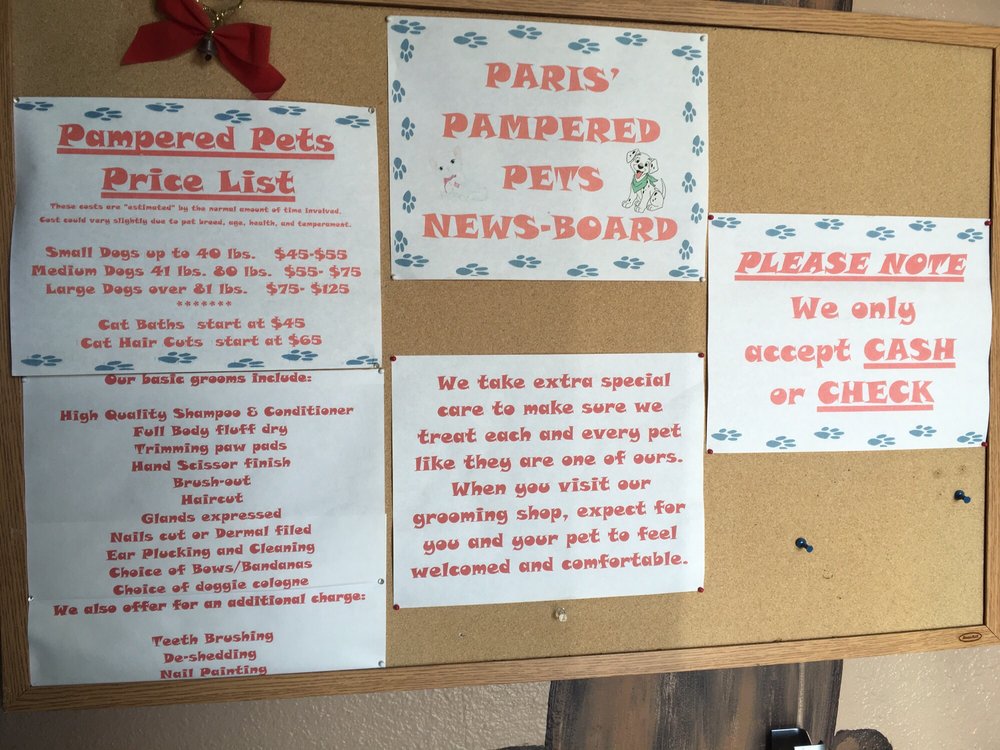 Pampered Pets
Price List
These costs are "estimated" by the normal amount of time involved.
Cost could very slightly due to pet breed, age, health, and temperament.
Small Dogs up to 40 lbs. $45-$55
Medium Dogs 41 lbs. 80 lbs. $55- $75
Large Dogs over 81 lbs. $75- $125
*******
Cat Baths start at $45
Cat Hair Cuts start at $65
Our basic grooms include:
High Quality Shampoo & Conditioner
Full Body fluff dry
Trimming paw pads
Hand Scissor finish
Brush-out
Haircut
Glands expressed
Nails cut or Dermal filed
Ear Plucking and Cleaning
Choice of Bows/Bandanas
Choice of doggie cologne
We also offer for an additional charge:
Teeth Brushing
De-shedding
Nail Painting
PARIS'
PAMPERED
PETS
NEWS-BOARD
We take extra special
care to make sure we
treat each and every pet
like they are one of ours.
When you visit our
grooming shop, expect for
you and your pet to feel
welcomed and comfortable.
PLEASE NOTE
We only
accept CASH
or CHECK